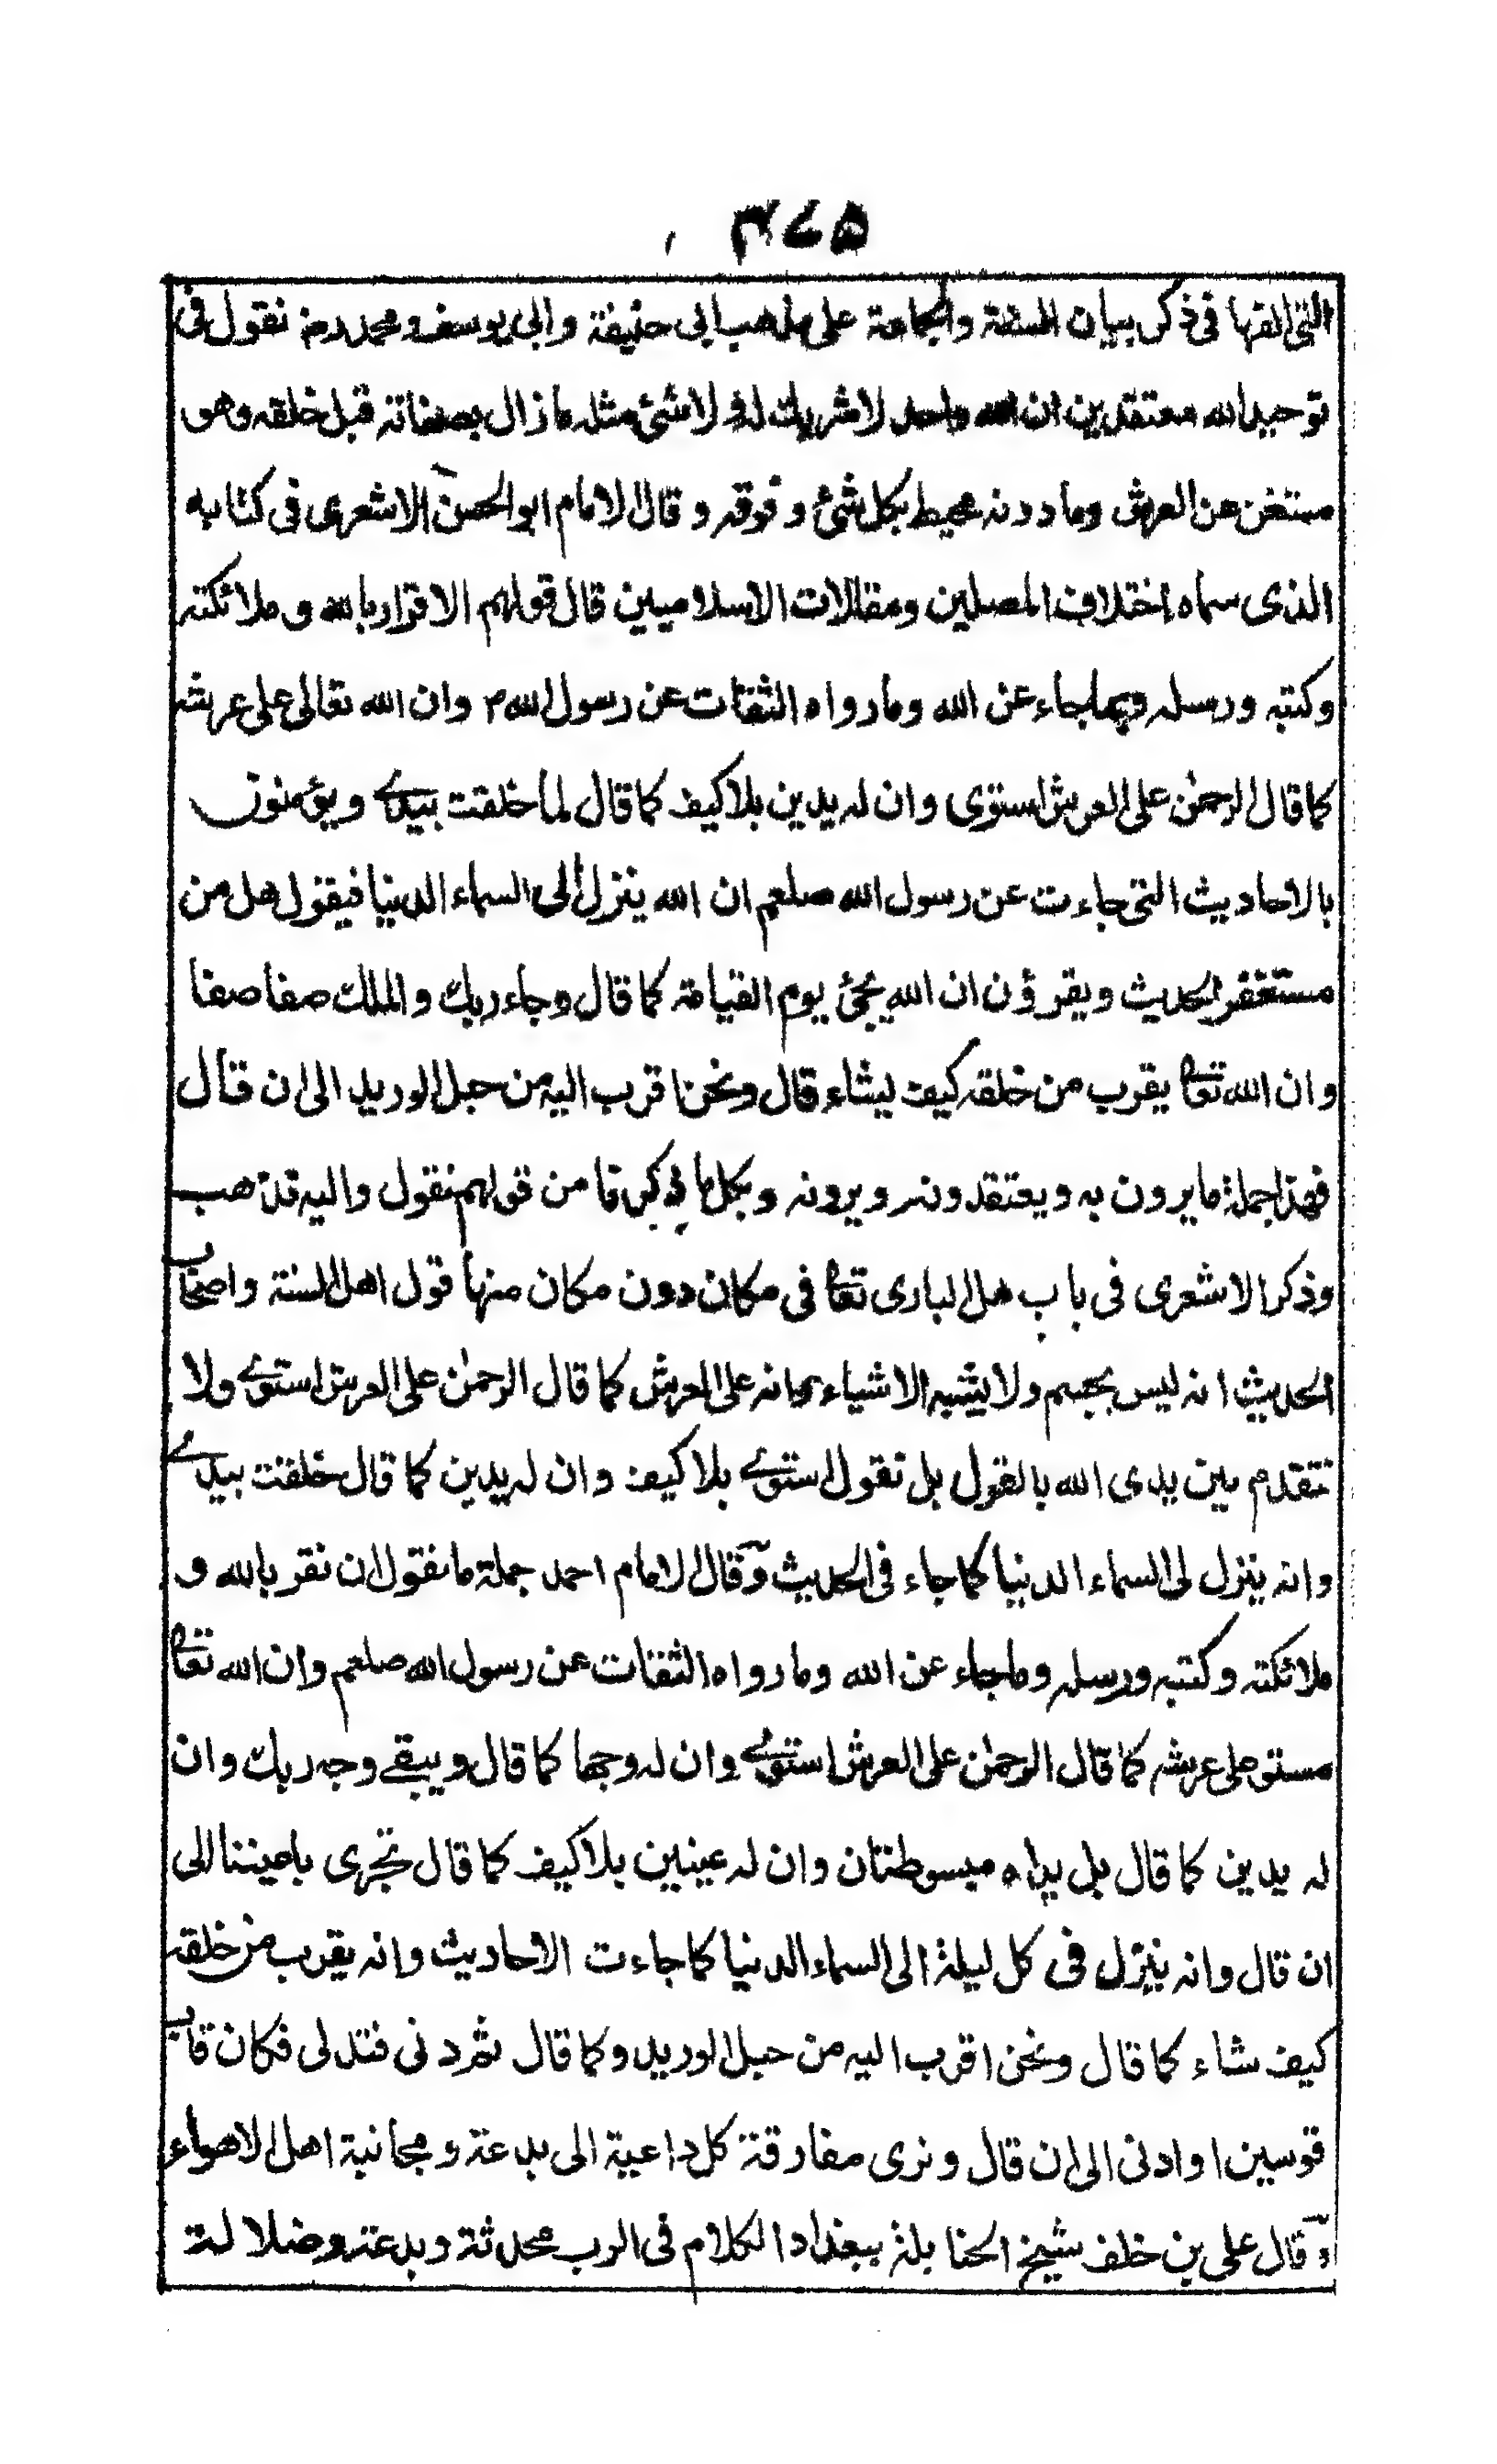 ٣٧٥
التی الفها فی ذکر بیان السنة والجماعة علی مذهب ابی حنیفة وابی یوسف ومحمد رضه نقول فی
توحید الله معتقدین ان الله واحد لا شریک له ولا شئ مثله ما زال بصفاته قبل خلقه وهو
مستغن عن العرش وما دونه محیط بکل شئ وفوقه وقال الامام ابو الحسن الاشعری فی کتابه
الذی سماه اختلاف المصلین ومقالات الاسلامیین قال قولهم الاقرار بالله و ملائکته
وکتبه ورسله وبما جاء عن الله وما رواه الثقات عن رسول الله م وان الله تعالی علی عرشه
کما قال الرحمٰن علی العرش استوی وان له یدین بلا کیف کما قال لما خلقت بیدے ویؤمنون
بالاحادیث التی جاءت عن رسول الله صلعم ان الله ینزل الی السماء الدنیا فیقول هل من
مستغفر الحدیث ویقرؤن ان الله یجئ یوم القیامة کما قال وجاء ربک والملک صفا صفا
وان الله تعا یقرب من خلقه کیف یشاء قال ونحن اقرب الیه من حبل الورید الی ان قال
فهذا جملة ما یرون به ویعتقدونه ویرونه وبکل ما ذکرنا من قولهم نقول والیه نذهب
وذکر الاشعری فی باب هل الباری تعا فی مکان دون مکان منها قول اهل السنة واصحاب
الحدیث انه لیس بجسم ولا یشبه الاشیاء وانه علی العرش کما قال الرحمٰن علی العرش استوے ولا
نتقدم بین یدی الله بالقول بل نقول استوے بلا کیف وان له یدین کما قال خلقت بیدے
وانه ینزل الی السماء الدنیا کما جاء فی الحدیث وقال الامام احمد جملة ما نقول ان نقر بالله و
ملائکته وکتبه ورسله وما جاء عن الله وما رواه الثقات عن رسول الله صلعم وان الله تعا
مستو علی عرشه کما قال الرحمٰن علی العرش استوے وان له وجها کما قال ویبقے وجه ربک وان
له یدین کما قال بل یداه مبسوطتان وان له عینین بلا کیف کما قال تجری باعیننا الی
ان قال وانه ینزل فی کل لیلة الی السماء الدنیا کما جاءت الاحادیث وانه یقرب من خلقه
کیف شاء کما قال ونحن اقرب الیه من حبل الورید وکما قال ثم دنی فتدلی فکان قاب
قوسین او ادنی الی ان قال ونری مفارقة کل داعیة الی بدعة ومجانبة اهل الاهواء
وقال علی بن خلف شیخ الحنابلة ببغداد الکلام فی الرب محدثة وبدعة وضلالة